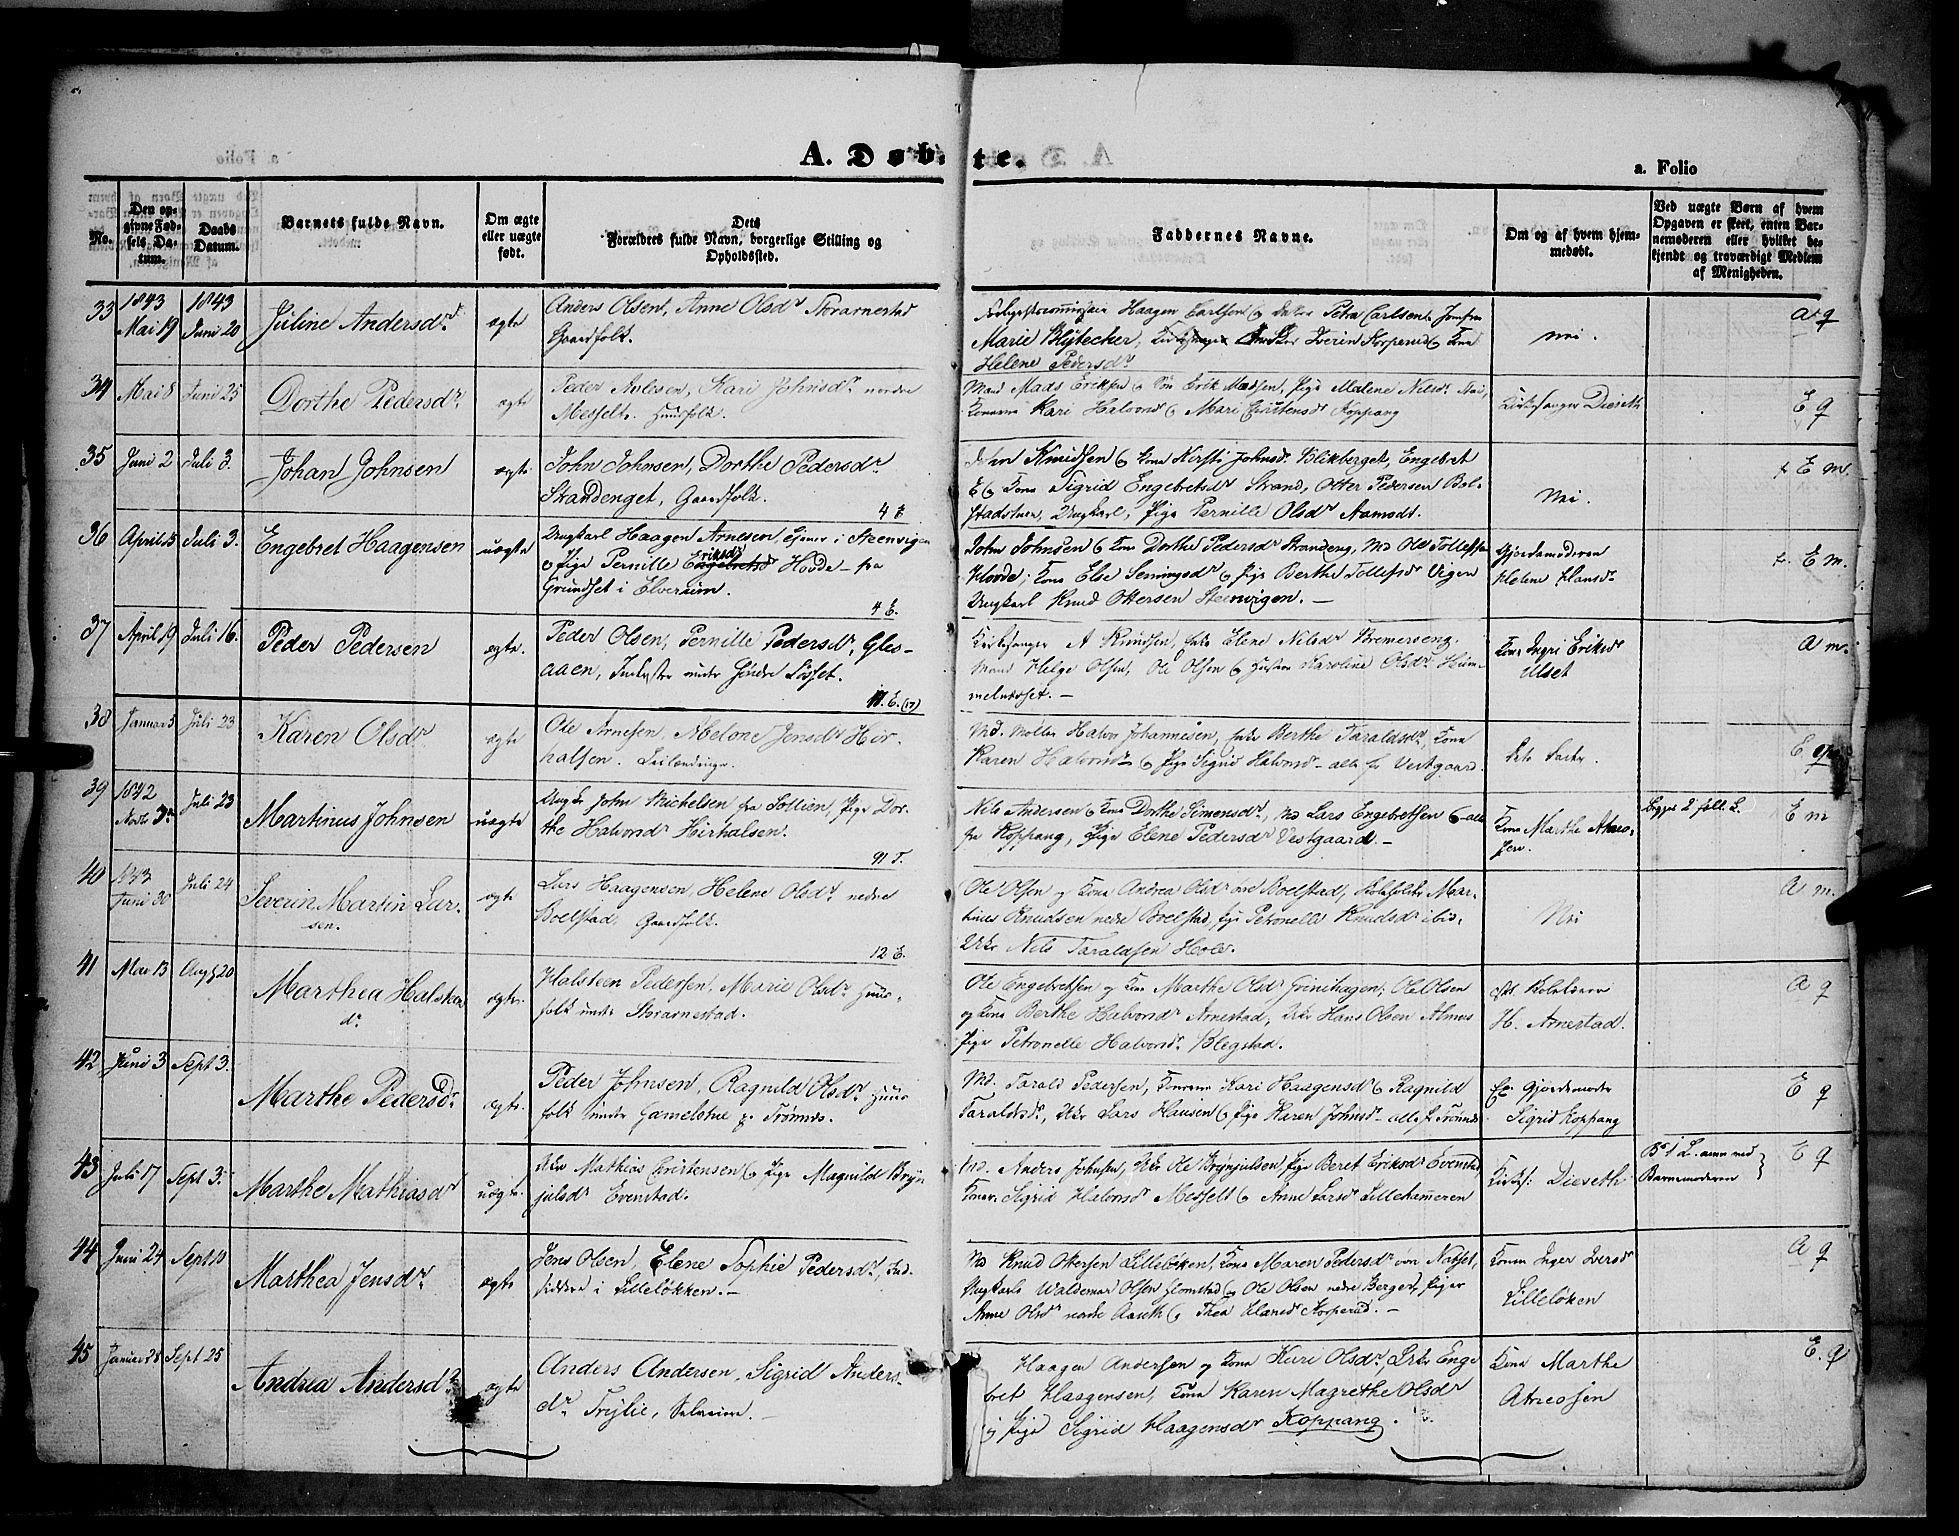 A. Døbte.
a. Folio
No.
Den opgivne Fødsels Datum.
Daabs Datum.
Barnets fulde Navn.
Om ægte eller uægte født.
Dets Forældres fulde Navn, borgerlige Stilling og Opholdssted.
Faddernes Navne.
Om og af hvem hjemmedøbt.
Ved uægte Børn af hvem Opgaven er skeet, enten Barnemoderen eller hvilket bekjendt og troværdigt Medlem af Menigheden.
33 1843 Mai 19 1843 Juni 20 Juline Andersdr ægte
Anders Olsen, Anne Olsdr Storarnestad
Gaardfolk.
Haagen Carlsen Petra Carlsen, Jomfru
Marie Iverin Korperud Kona
Helene Pedersdr
Nei.
A q
34 Mai 8 Juni 25 Dorthe Pedersdr ægte
Peder Kari Johnsdr nordre
Messelt. Huusfolk.
Mand Mads Eriksen Erik Madsen, Pige Malene Nilsdr
Konerne Kari Halvorsd Mari Christensdr Koppang
Kirkesanger Dieseth
E q
35 Juni 2 Juli 3. Johan Johnsen ægte
John Johnsen, Dorthe Pedersdr
Strandenget, Gaardfolk.
4 E
John Knudsen Kona Kirsti Johnsdr Blikberget, Engebret
Kona Sigrid Engebretsdr Strand, Otter Pedersen Bol-
stadstuen, Ungkarl, Pige Pernille Olsdr Aamodt.
Nei
E m.
36 April 15 Juli 3. Engebret Haagensen uægte
Ungkarl Haagen Arnesen, tjener i Steenvigen
Pige Pernille Eriksdr Hovde - fra
Grundset i Elverum.
4 E.
John Johnsen Kona Dorthe Pedersdr Strandeng, Md Ole Tollefsen
Hovde; Kona Else Semingsdr Pige Berthe Tollefsdr Vigen
Ungkarl Knud Ottersen Steenvigen. -
Gjordemoderen
Helene Hansdr
E m.
37 April 19 Juli 16. Peder Pedersen ægte.
Peder Olsen, Pernille Pedersdr, Gles-
aaen, Inderster under Søndre Løsset.
11. E. (17)
Kirkesanger A Knudsen, Enke Elene Nilsdr Bremerseng.
Mand Helge Olsen, Ole Olsen Karoline Olsdr Him-
melaasset. -
Kona Ingri Eriksdr
Ulset
A m.
38 Januar 5 Juli 23 Karen Olsdr ægte
Ole Arnesen, Abelone Jensdr Hir-
halsen. Leilændinge.
Md. Møller Halvor Johannesen, Enke Berthe Taraldsdr, Kona
Karen Halvorsd Pige Sigrid Halvorsd - alle fr Vestgaard.
Dets Fader.
E q
39 1842 Juli 23 Martinus Johnsen uægte
Ungkr John Michelsen fra Sollien, Pige Dor-
the Halvorsdr Hirhalsen.
91 T.
Nils Andersen Kona Dorthe Simensdr, Md Lars Engebretsen - alle
fra Koppang, Pige Elene Pedersdr Vestgaard. -
Kona Marthe
E m
40 1843 Juni 30 Juli 24 Severin Martin Lar-
sen. ægte
Lars Haagensen, Helene Olsdr nedre
Bolstad, Gaardfolk.
12 E.
Ole Olsen og Kona Andrea Olsdr øvre Bolstad, Mar-
tinus Knudsen nedre Bolstad, Pige Petronelle Knudsdr ibid.
Ukr Nils Taraldsen Hole.
Nei
A m.
41 Mai 13 Aug 20 Marthea Halsten-
dr ægte.
Halsteen Pedersen, Marie Olsdr Huus-
folk under Storarnestad.
Ole Engebretsen og Kona Marthe Olsdr Grinihagen; Ole Olsen
og Kona Berthe Halvorsdr Arnestad, Ukr Hans Olsen
Pige Petronelle Halvorsdr Blegstad.
H. Arnestad.
A q
42 Juni 3 Sept 3. Marthe Pedersdr ægte.
Peder Johnsen, Ragnild Olsdr Huus-
folk under Gamelstue p. Trønnes.
Md. Tarald Pedersen, Konerne Kari Haagensdr Ragnild
Taraldsdr, Ukr Lars Hansen Pige Karen Johnsd - alle fr Trønnes
Ex. Gjordemoder
Sigrid Koppang
E q
43 Juli 17 Sept 3. Marthe Mathiasdr uægte
Ukr Mathias Christensen Pige Magnild Bryn-
julsdr Evenstad.
Md. Anders Johnsen, Ukr Ole Brynjulsen, Pige Beret Eriksdr Evenstad,
Koner Sigrid Halvorsdr Messelt Anne Larsdr Lillehammeren
Kirkes: Dieseth
Barnemoderen
E q
44 Juni 24 Sept 10 Marthea Jensdr ægte
Jens Olsen, Elene Sophie Pedersdr, Ind-
siddere i Lilleløkken. -
Md Knud Ottersen Lilleløken, Kona Maren Pedersdr øvre Natset,
Ungkarle Waldemar Olsen Glomstad Ole Olsen nedre Berget, Piger
Anne Olsdr nordre Aaseth Thea Hansdr Korperud. -
Konen Inger Iversdr
Lilleløken
A q
45 Januar 28 Sept 25 Andrea Andersdr ægte
Anders Andersen, Sigrid Anders-
dr Trylie, Selveiere. -
Haagen Andersen og Kona Kari Olsdr, Ukr Enge-
bret Haagensen, Kona Karen Magrethe Olsdr
Pige Sigrid Haagensdr Koppang.
Kona Marthe
Atneosen
E. q